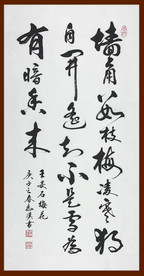 墙角数枝梅凌寒独
自开遥知不是雪为
有暗香来
王安石梅花
庚子之春